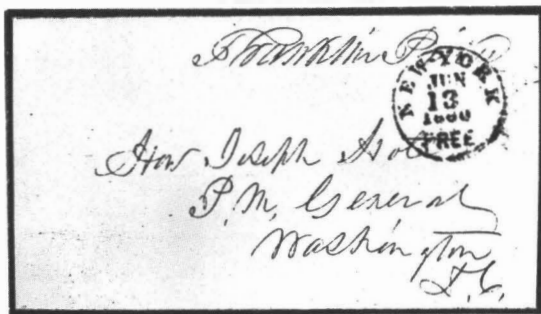 Franklin
NEW-YORK
JUN
13
1860
FREE
Hon Joseph
P.M. General
Washington
D.C.